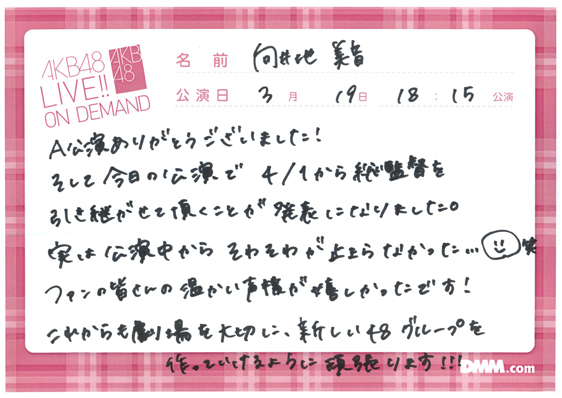 AKB48
LIVE!!
ON DEMAND
AKB
48
名前 向井地 美音
公演日 3月 19日 18:15 公演
A公演ありがとうございました!
そして今日の公演で 4/1から総監督を
引き継がせて頂くことが発表になりました。
実は公演中からそわそわが止まらなかった…笑
ファンの皆さんの温かい声援が嬉しかったです!
これからも劇場を大切に、新しい48グループを
作っていけるように頑張ります!!!
DMM.com